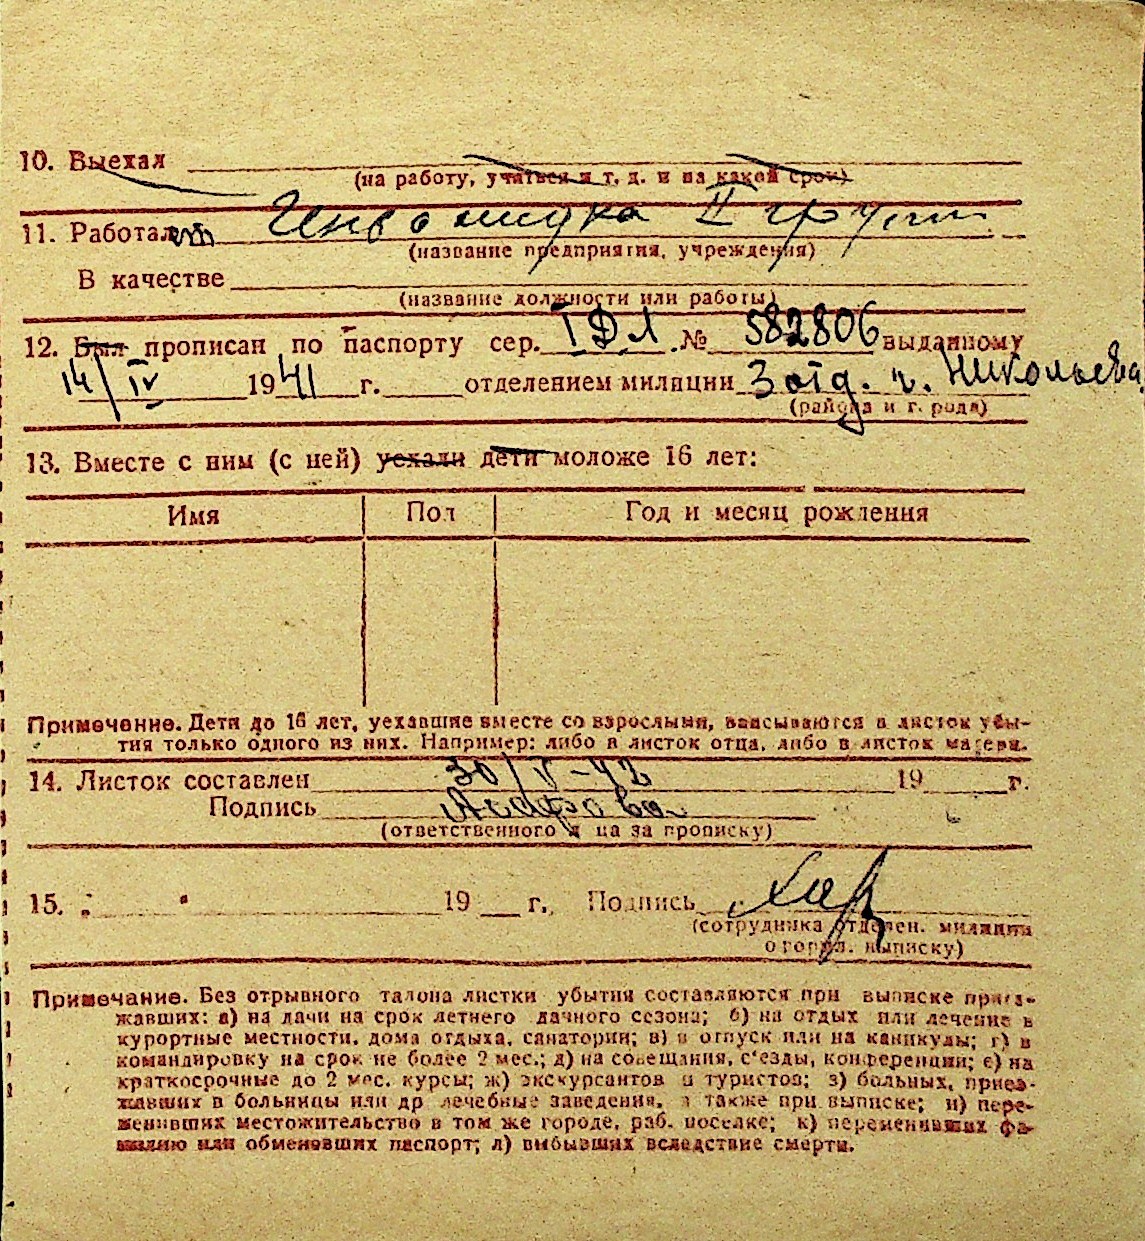 10. Выехал
(на работу, учиться и т. д. и на какой срок)
11. Работал Инвалидка II групп
(название предприятия, учреждения)
В качестве
(название должности или работы)
12. Был прописан по паспорту сер. I ДЛ № 582806 выданному
14/IV 1941 г. отделением милиции 3 отд. г. Николаева
(района и города)
13. Вместе с ним (с ней) уехали дети моложе 16 лет:
Имя Пол Год и месяц рождения
Примечание. Дети до 16 лет, уехавшие вместе со взрослыми, вписываются в листок убы-
тия только одного из них. Например: либо в листок отца, либо в листок матери.
14. Листок составлен 30/V-42 19 г.
Подпись
(ответственного лица за прописку)
15. " " 19 г. Подпись
(сотрудника отделен. милиции
о горил. выписку)
Примечание. Без отрывного талона листки убытия составляются при выписке приез-
жавших: а) на дачи на срок летнего дачного сезона; б) на отдых или лечение в
курортные местности, дома отдыха, санатории; в) в отпуск или на каникулы; г) в
командировку на срок не более 2 мес.; д) на совещания, с'езды, конференции; е) на
краткосрочные до 2 мес. курсы; ж) экскурсантов и туристов; з) больных, приез-
жавших в больницы или др лечебные заведения, а также при выписке; и) пере-
менивших местожительство в том же городе, раб. поселке; к) переменивших фа-
милию или обменявших паспорт; л) выбывших вследствие смерти.